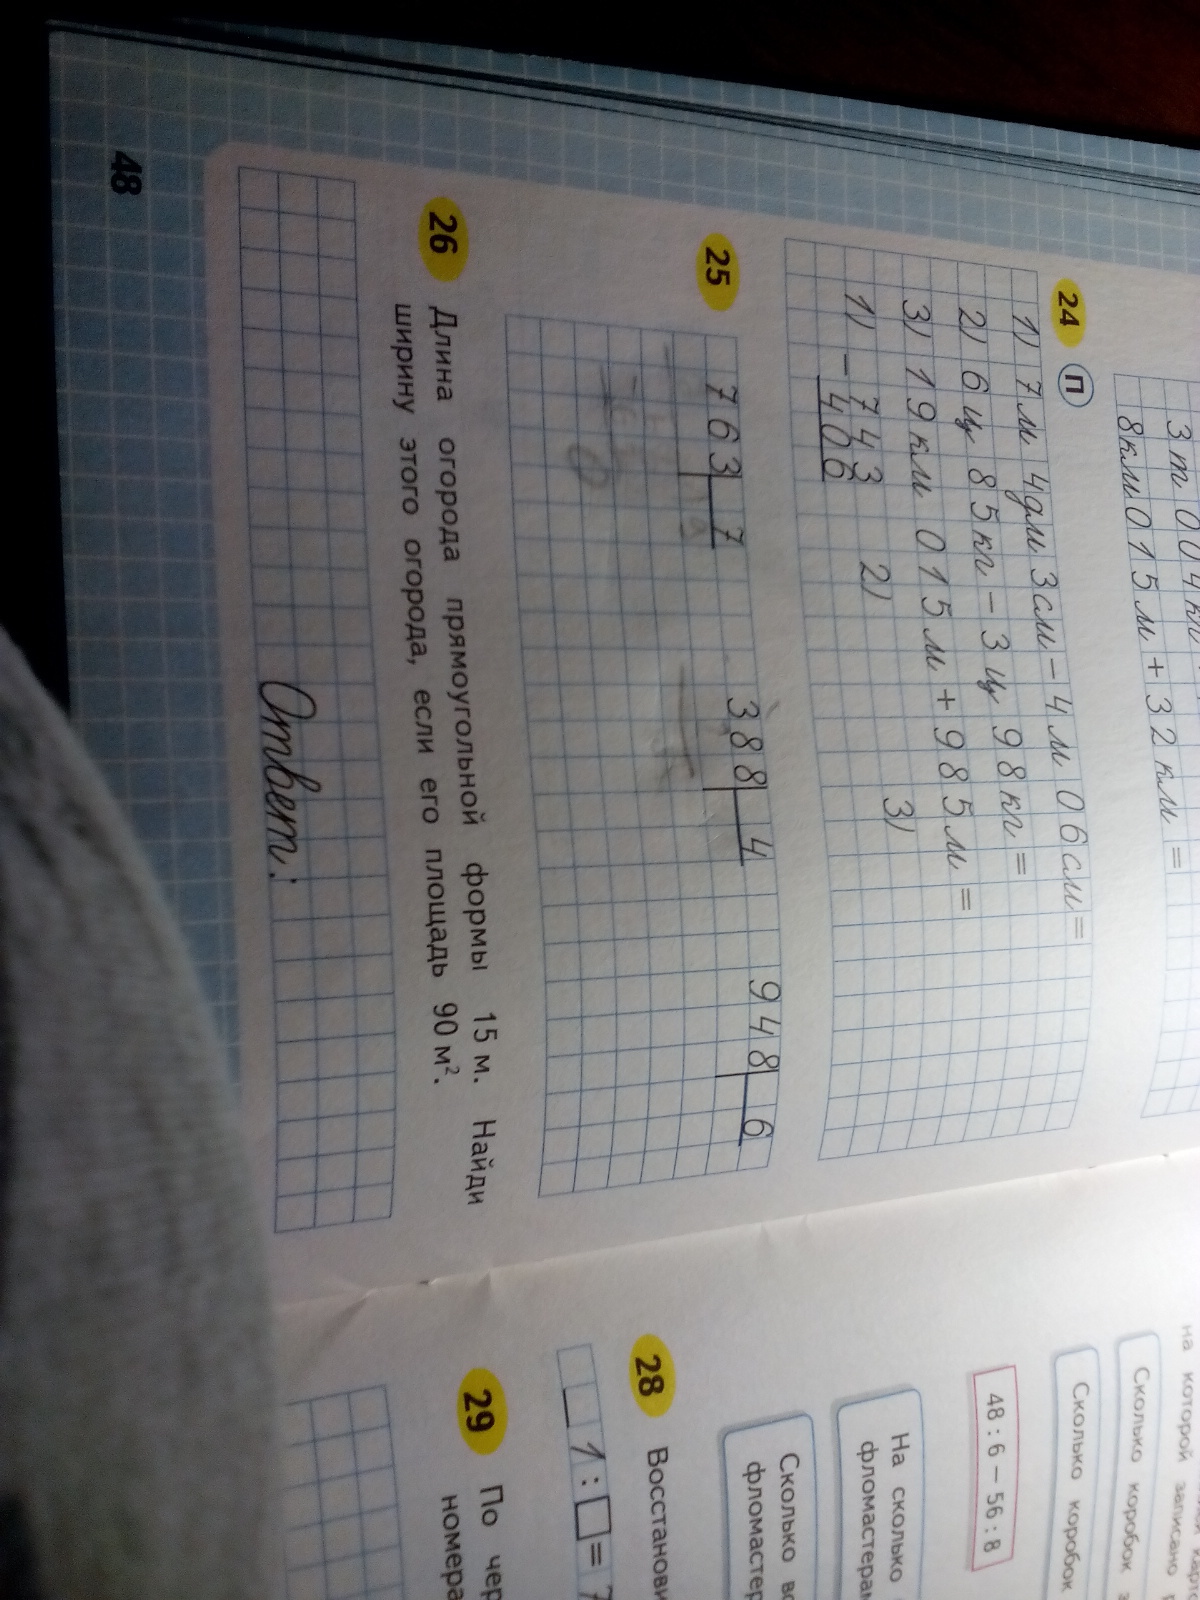 3т 004кг
8км 015м + 32км =
24 П
1) 7м 4дм 3см − 4м 06см =
2) 6ц 85кг − 3ц 98кг =
3) 19км 015м + 985м =
1) − 743 2) 3)
406
25
763 7 388 4 948 6
26 Длина огорода прямоугольной формы 15 м. Найди
ширину этого огорода, если его площадь 90 м².
Ответ:
48
на которой записано
Сколько коробок
Сколько коробок
48 : 6 − 56 : 8
На сколько
фломастера
Сколько
фломастер
28 Восстанови
1 : □ = 7
29 По чер
номера